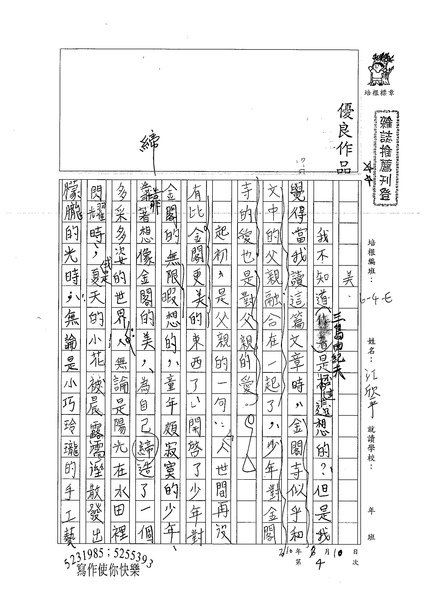 培根標章
雜誌推薦刊登
優良作品
培根編班：6-4-E
姓名：江欣平
就讀學校：
年 班
210年 8月10日
第4次
美
三島由紀夫
我不知道作者是這麼想的？但是我
覺得當我讀這篇文章時，金閣寺似乎和
文中的父親融合在一起了，少年對金閣
寺的愛也是對父親的愛。
起初，是父親的一句：人世間再沒
有比金閣更美的東西了，開啓了少年對
金閣的無限暇想的，童年頗寂寞的少年，
靠著想像金閣的美，為自己締造了一個
多采多姿的世界，無論是陽光在水田裡
閃耀時，或是夏天的小花被晨露濡溼散發出
朦朧的光時，無論是小巧玲瓏的手工藝
締
5231985；5255393
寫作使你快樂